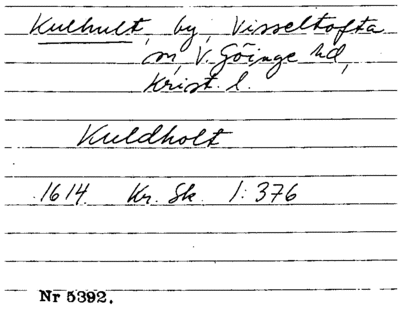 Kulhult, by, Visseltofta
sn, V. Göinge hd,
Krist. l.
Kuldholt
1614 Kr. Sk. 1:376
Nr 5392.